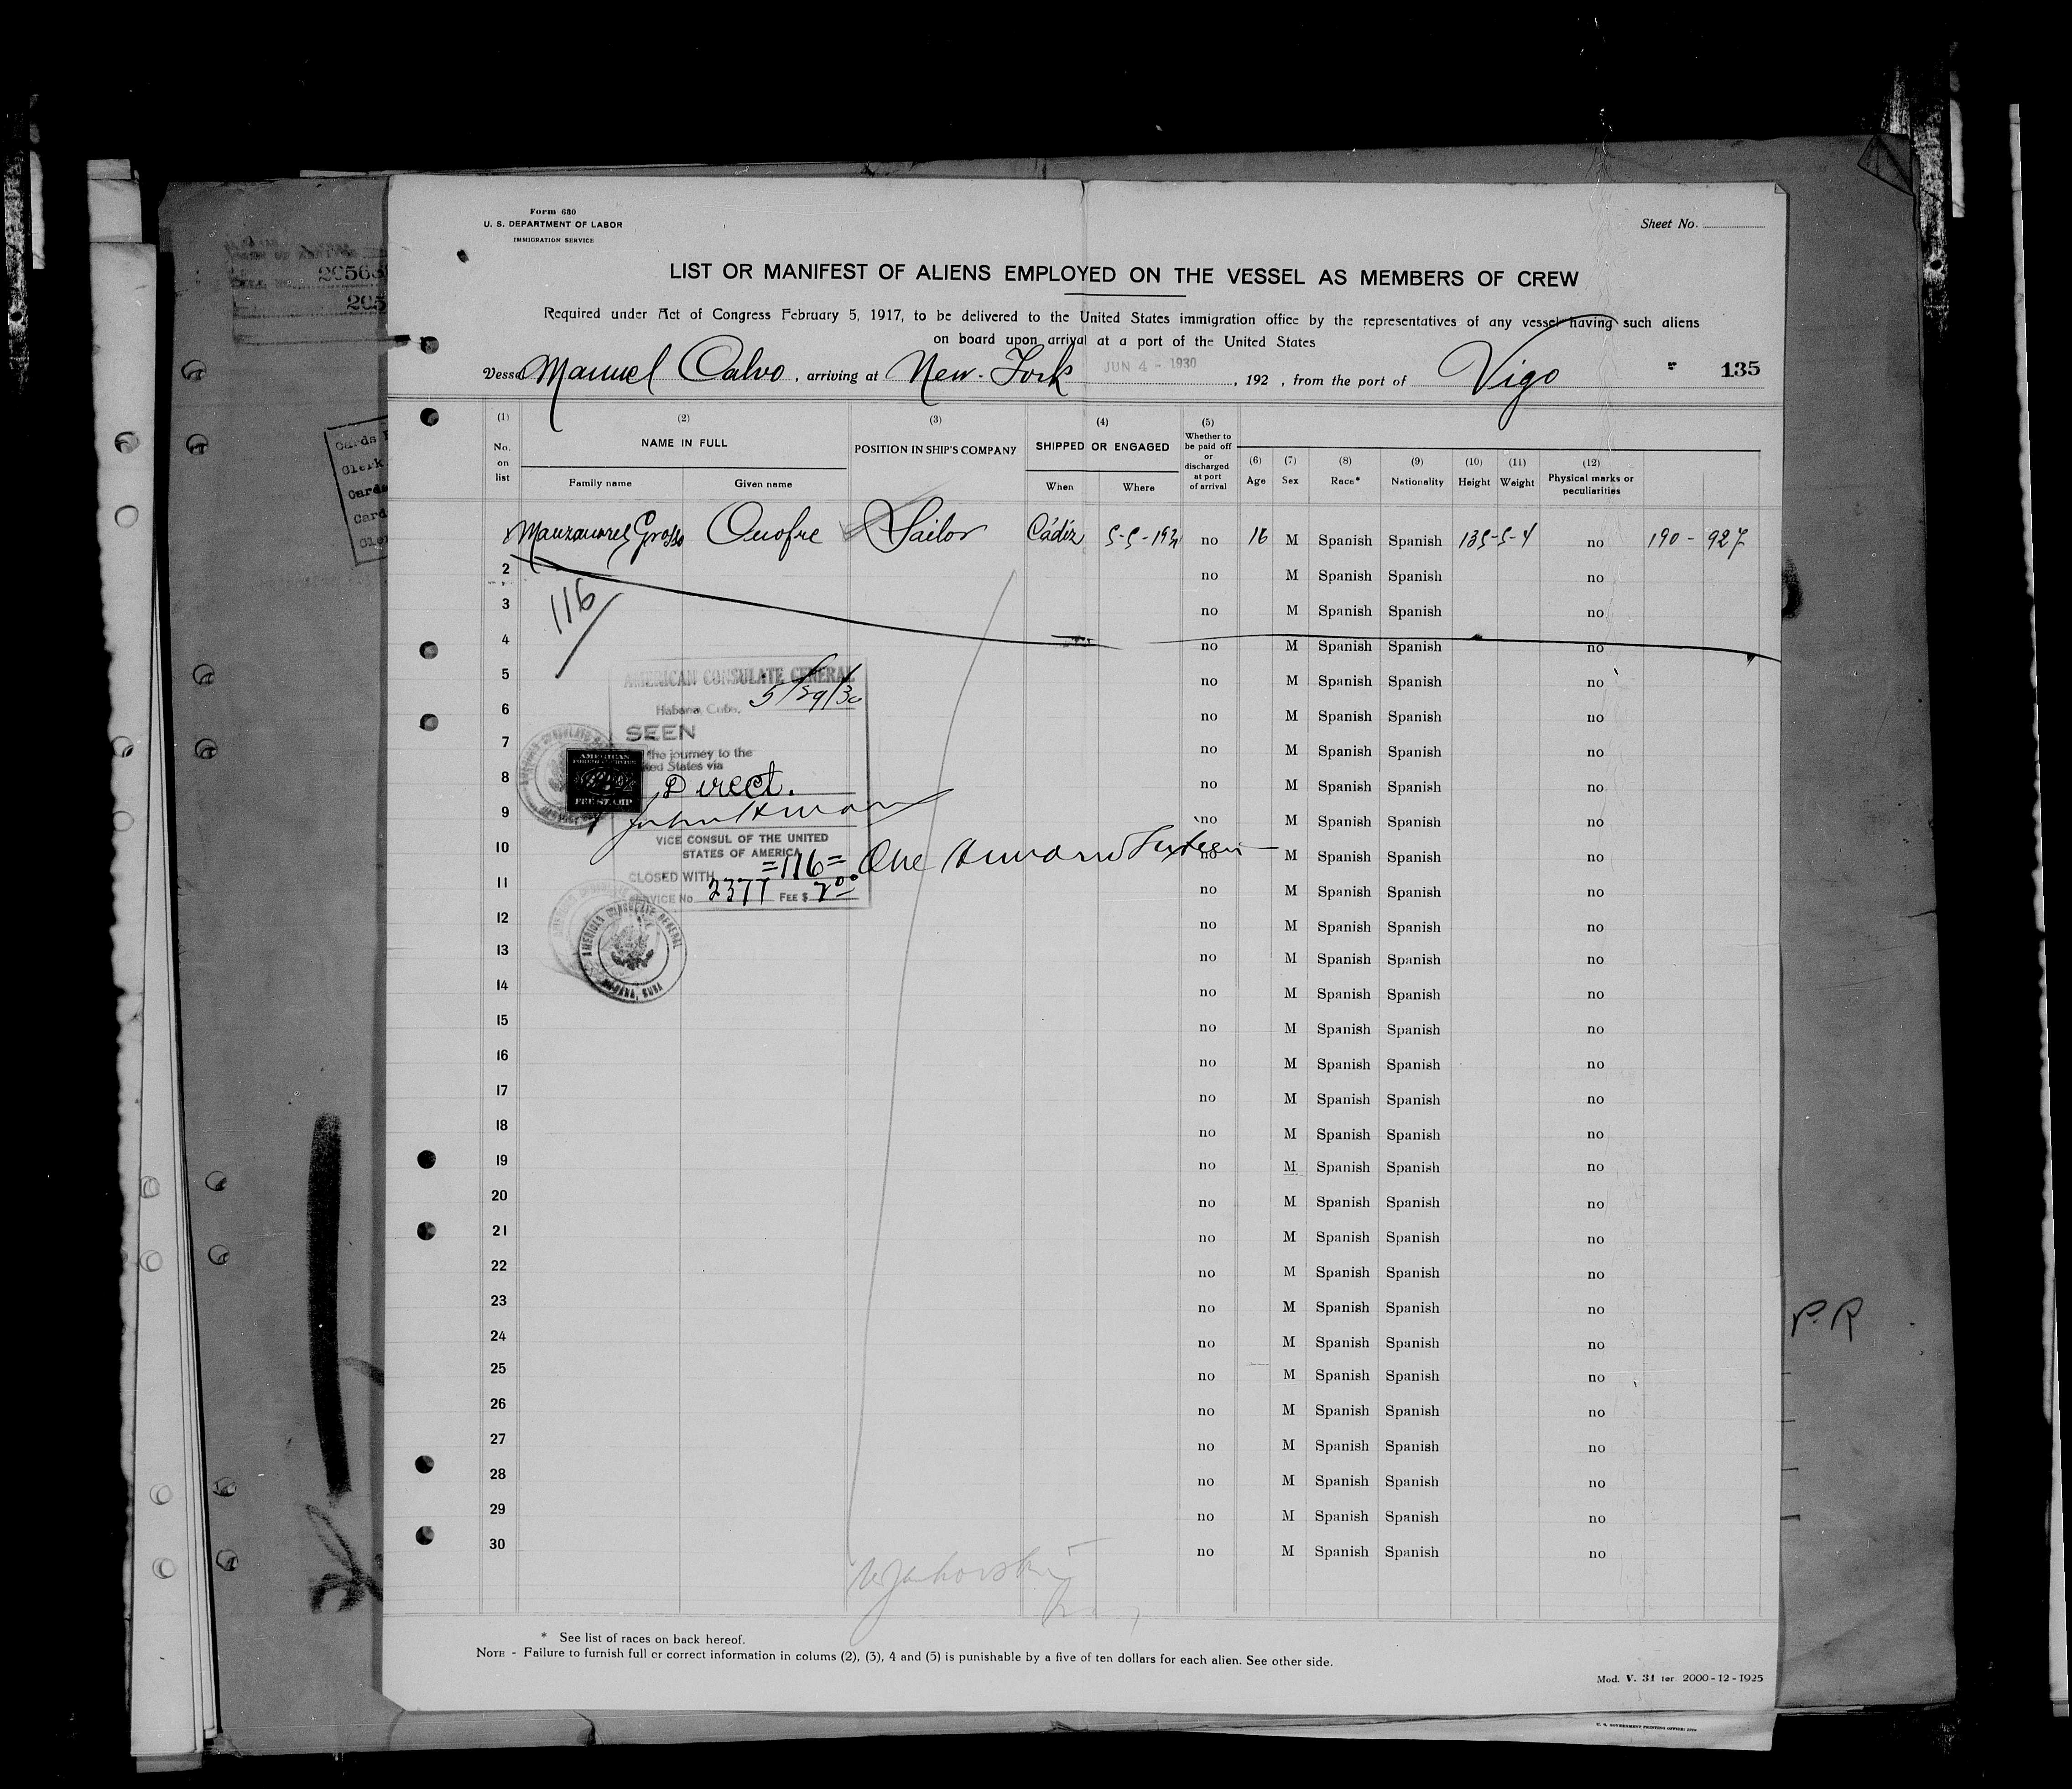 Form 680
U. S. DEPARTMENT OF LABOR
IMMIGRATION SERVICE
Sheet No.
LIST OR MANIFEST OF ALIENS EMPLOYED ON THE VESSEL AS MEMBERS OF CREW
Required under Act of Congress February 5, 1917, to be delivered to the United States immigration office by the representatives of any vessel having such aliens
on board upon arrival at a port of the United States
Vessel Manuel Calvo, arriving at New-York JUN 4 - 1930, 192 , from the port of Vigo
135
(1) (2) (3) (4) (5)
No. on list NAME IN FULL POSITION IN SHIP'S COMPANY SHIPPED OR ENGAGED Whether to be paid off or discharged at port of arrival
(6) (7) (8) (9) (10) (11) (12)
Family name Given name When Where Age Sex Race* Nationality Height Weight Physical marks or peculiarities
Onofre Sailor Cádiz no 16 M Spanish Spanish 135-5-4 no 190 - 927
2 no M Spanish Spanish no
3 no M Spanish Spanish no
116
4 no M Spanish Spanish no
5 no M Spanish Spanish no
6 no M Spanish Spanish no
7 no M Spanish Spanish no
8 no M Spanish Spanish no
9 no M Spanish Spanish no
10 no M Spanish Spanish no
11 no M Spanish Spanish no
12 no M Spanish Spanish no
13 no M Spanish Spanish no
14 no M Spanish Spanish no
15 no M Spanish Spanish no
16 no M Spanish Spanish no
17 no M Spanish Spanish no
18 no M Spanish Spanish no
19 no M Spanish Spanish no
20 no M Spanish Spanish no
21 no M Spanish Spanish no
22 no M Spanish Spanish no
23 no M Spanish Spanish no
24 no M Spanish Spanish no
25 no M Spanish Spanish no
26 no M Spanish Spanish no
27 no M Spanish Spanish no
28 no M Spanish Spanish no
29 no M Spanish Spanish no
30 no M Spanish Spanish no
AMERICAN CONSULATE GENERAL
Habana, Cuba, 5/29/30
SEEN
the journey to the
ted States via
Direct.
AMERICAN
FOREIGN SERVICE
FEE STAMP
VICE CONSUL OF THE UNITED
STATES OF AMERICA
CLOSED WITH =116= One Hundred Sixteen
VICE No. 2377 FEE $ 2.00
AMERICAN CONSULATE GENERAL
HABANA, CUBA
* See list of races on back hereof.
NOTE - Failure to furnish full or correct information in colums (2), (3), 4 and (5) is punishable by a five of ten dollars for each alien. See other side.
Mod. V. 31 ter. 2000-12-1925
U. S. GOVERNMENT PRINTING OFFICE
P.R
Cards
Clerk
Cards
Card